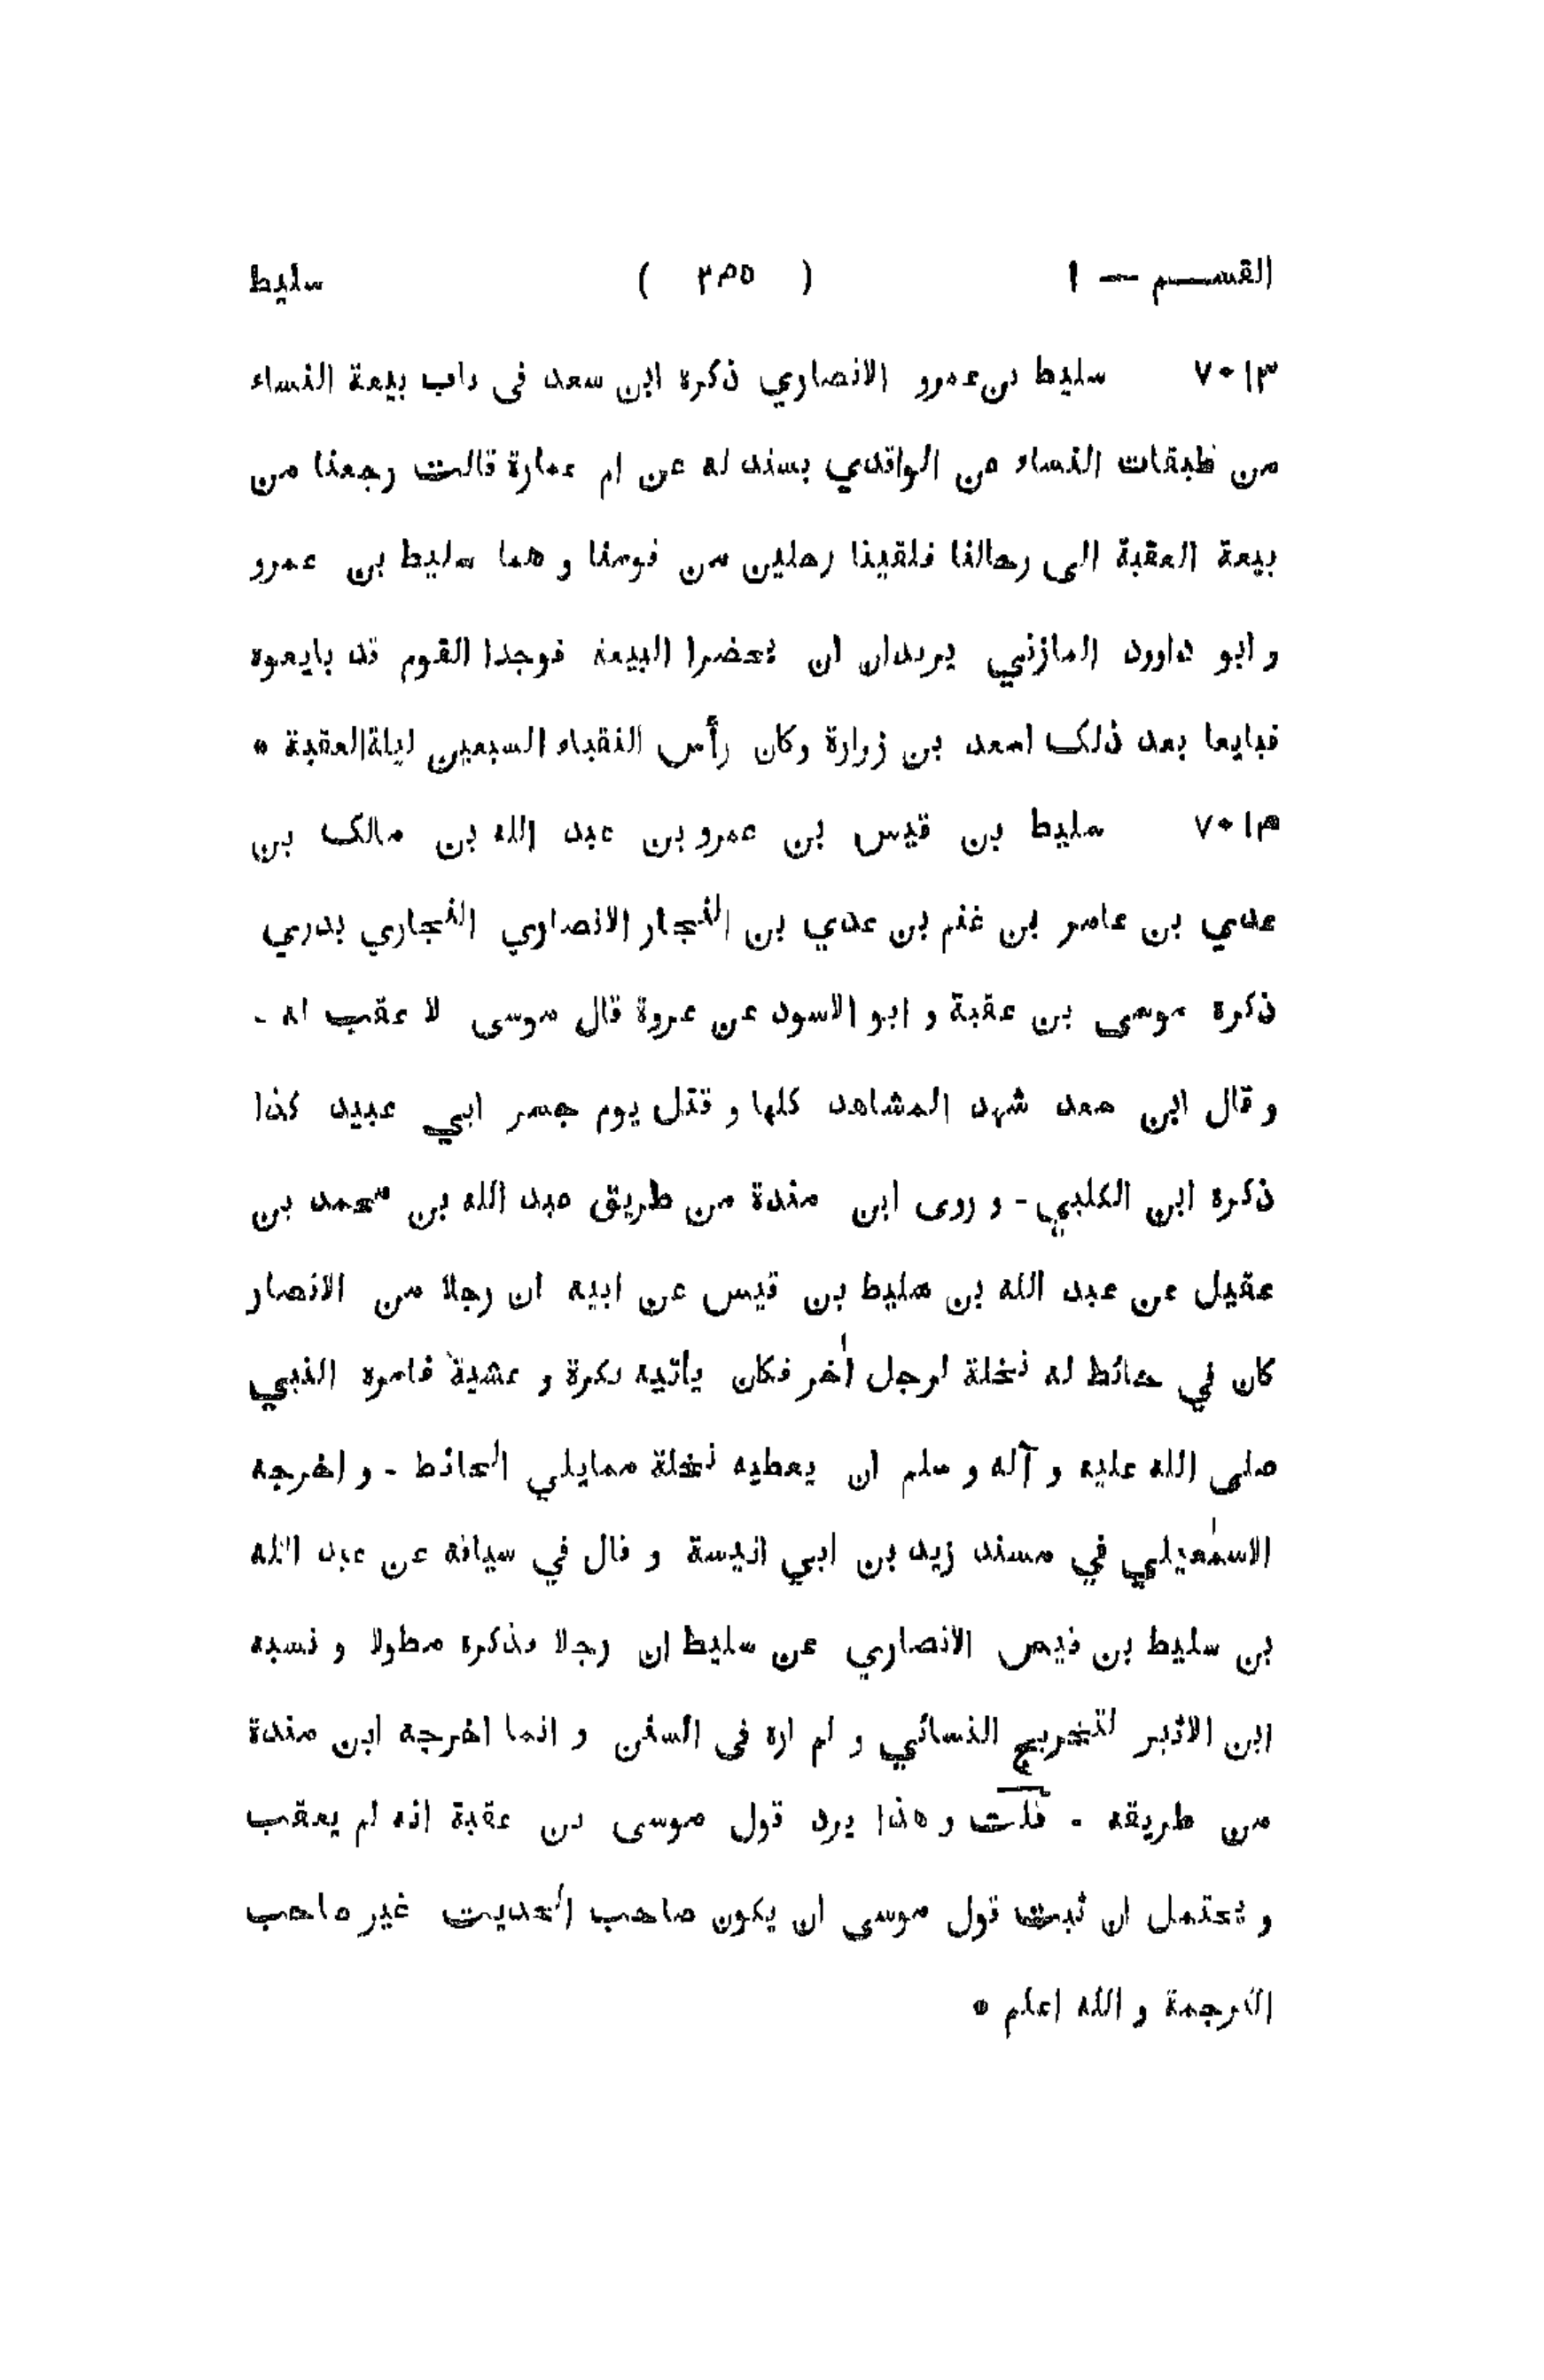 القسم — ١ ( ٢٤٥ ) سليط
٧٠١٣ سليط بن عمرو الانصاري ذكرة ابن سعد فى باب بيعة النساء
من طبقات النساء عن الواقدي بسند له عن ام عمارة قالت رجعنا من
بيعة العقبة الى رحالنا فلقينا رجلين من قومنا و هما سليط بن عمرو
و ابو داوود المازني يريدان ان يحضرا البيعة فوجدا القوم قد بايعوة
فبايعا بعد ذلك اسعد بن زرارة وكان رأس النقباء السبعين ليلة العقبة *
٧٠١٤ سليط بن قيس بن عمرو بن عبد الله بن مالك بن
عدي بن عامر بن غنم بن عدي بن النجار الانصاري النجاري بدري
ذكرة موسى بن عقبة و ابو الاسود عن عروة قال موسى لا عقب له -
و قال ابن سعد شهد المشاهد كلها و قتل يوم جسر ابي عبيد كذا
ذكرة ابن الكلبي - و روى ابن مندة من طريق عبد الله بن محمد بن
عقيل عن عبد الله بن سليط بن قيس عن ابيه ان رجلا من الانصار
كان في حائط له نخلة لرجل اٰخر فكان ياتيه بكرة و عشية فامرة النبي
صلى الله عليه و آله و سلم ان يعطيه نخلة ممايلي الحائط - و اخرجه
الاسمٰعيلي في مسند زيد بن ابي انيسة و قال في سياقه عن عبد الله
بن سليط بن قيس الانصاري عن سليط ان رجلا فذكرة مطولا و نسبه
ابن الاثير لتخريج النسائي و لم ارة فى السنن و انما اخرجه ابن مندة
من طريقه - قلت و هذا يرد قول موسى بن عقبة انه لم يعقب
و يحتمل ان ثبت قول موسى ان يكون صاحب الحديث غير صاحب
الترجمة و الله اعلم *